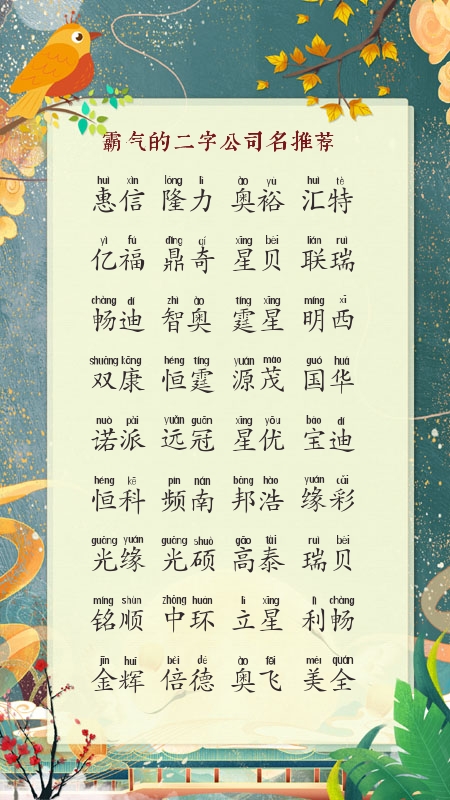 霸气的二字公司名推荐
huì xìn lóng lì ào yù huì tè
惠信 隆力 奥裕 汇特
yì fú dǐng qí xīng bèi lián ruì
亿福 鼎奇 星贝 联瑞
chàng dí zhì ào tíng xīng míng xī
畅迪 智奥 霆星 明西
shuāng kāng héng tíng yuán mào guó huá
双康 恒霆 源茂 国华
nuò pài yuǎn guān xīng yōu bǎo dí
诺派 远冠 星优 宝迪
héng kē pín nán bāng hào yuán cǎi
恒科 频南 邦浩 缘彩
guāng yuán guāng shuò gāo tài ruì bèi
光缘 光硕 高泰 瑞贝
míng shùn zhōng huán lì xīng lì chàng
铭顺 中环 立星 利畅
jīn huī bèi dé ào fēi měi quán
金辉 倍德 奥飞 美全